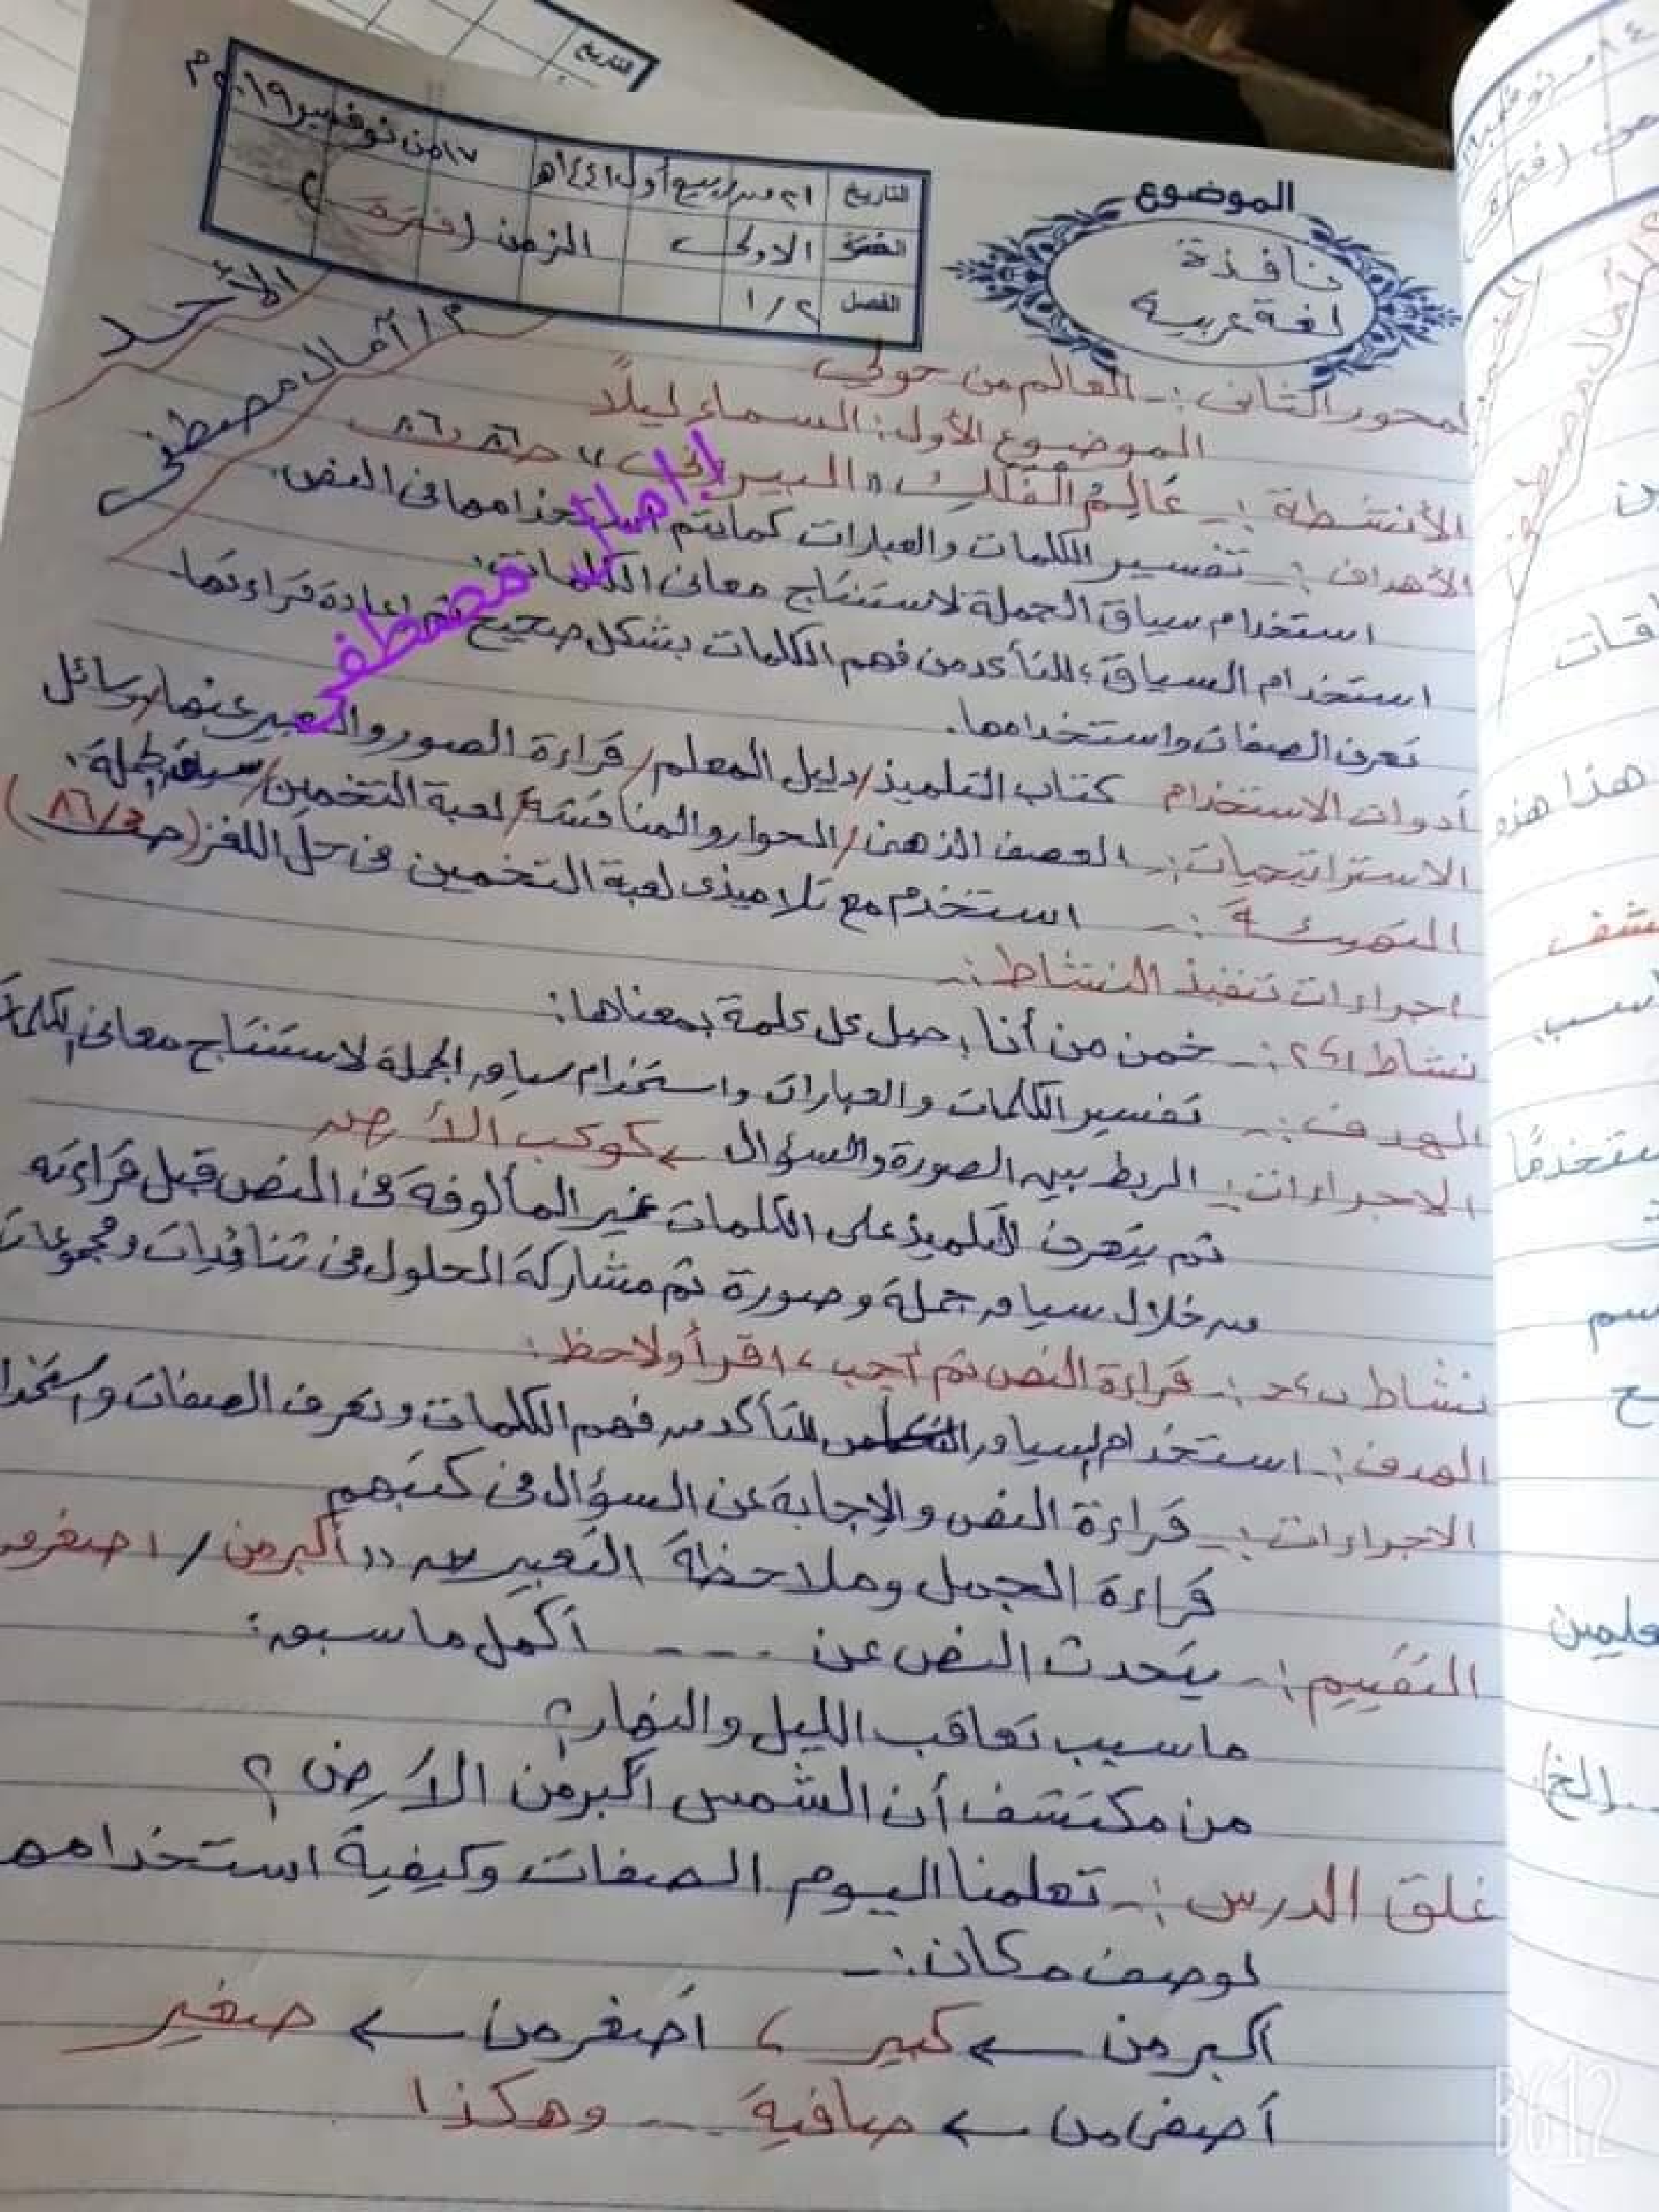 التاريخ
الموضوع
نافذة
لغة عربية
التاريخ ٢١ من ربيع أول ١٤٤١هـ ١٧ من نوفمبر ٢٠١٩م
الفترة الاولى الزمن (فترة)
الفصل ٢/١
الأحد
أ/ آمال مصطفى
المحور الثانى :- العالم من حولي
الموضوع الأول : السماء ليلًا
الأنشطة :- عَالِمُ الْفَلَكِ "البيرونى" ص٨٦،٨٦
الأهداف :- تفسير الكلمات والعبارات كما يتم استخدامها فى النص.
استخدام سياق الجملة لاستنتاج معانى الكلمات.
استخدام السياق؛ للتأكد من فهم الكلمات بشكل صحيح ثم إعادة قراءتها.
تعرف الصفات واستخدامها.
أ/ آمال مصطفى
أدوات الاستخدام كتاب التلميذ/دليل المعلم/قراءة الصور والتعبير عنها/وسائل
الاستراتيجيات :- العصف الذهنى/الحوار والمناقشة/لعبة التخمين/سياق الجملة.
التهيئة :- استخدم مع تلاميذى لعبة التخمين فى حل اللغز (ص٨٦/٥)
اجراءات تنفيذ النشاط :-
نشاط ١،٢ :- خمن من أنا، صل كل كلمة بمعناها :
الهدف :- تفسير الكلمات والعبارات واستخدام سياق الجملة لاستنتاج معانى الكلمات
الاجراءات :- الربط بين الصورة والسؤال ← كوكب الأرض
ثم يتعرف التلميذ على الكلمات غير المألوفة فى النص قبل قراءته
من خلال سياق جملة وصورة ثم مشاركة الحلول فى ثنائيات ومجموعات
نشاط :- قراءة النص ثم أجب، اقرأ ولاحظ :
الهدف :- استخدام السياق للتأكد من فهم الكلمات وتعرف الصفات واستخدا
الاجراءات :- قراءة النص والإجابة عن السؤال فى كتبهم
قراءة الجمل وملاحظة التعبير "أكبر من / اصغر من
التقييم :- يتحدث النص عن ---- أكمل ما سبق :
ما سبب تعاقب الليل والنهار؟
من مكتشف أن الشمس أكبر من الأرض ؟
غلق الدرس :- تعلمنا اليوم الصفات وكيفية استخدامها
لوصف مكان :-
أكبر من ← كبير ، أصغر من ← صغير
أصفى من ← صافية -- وهكذا
هذا هذه
علمين
الخ)
B612